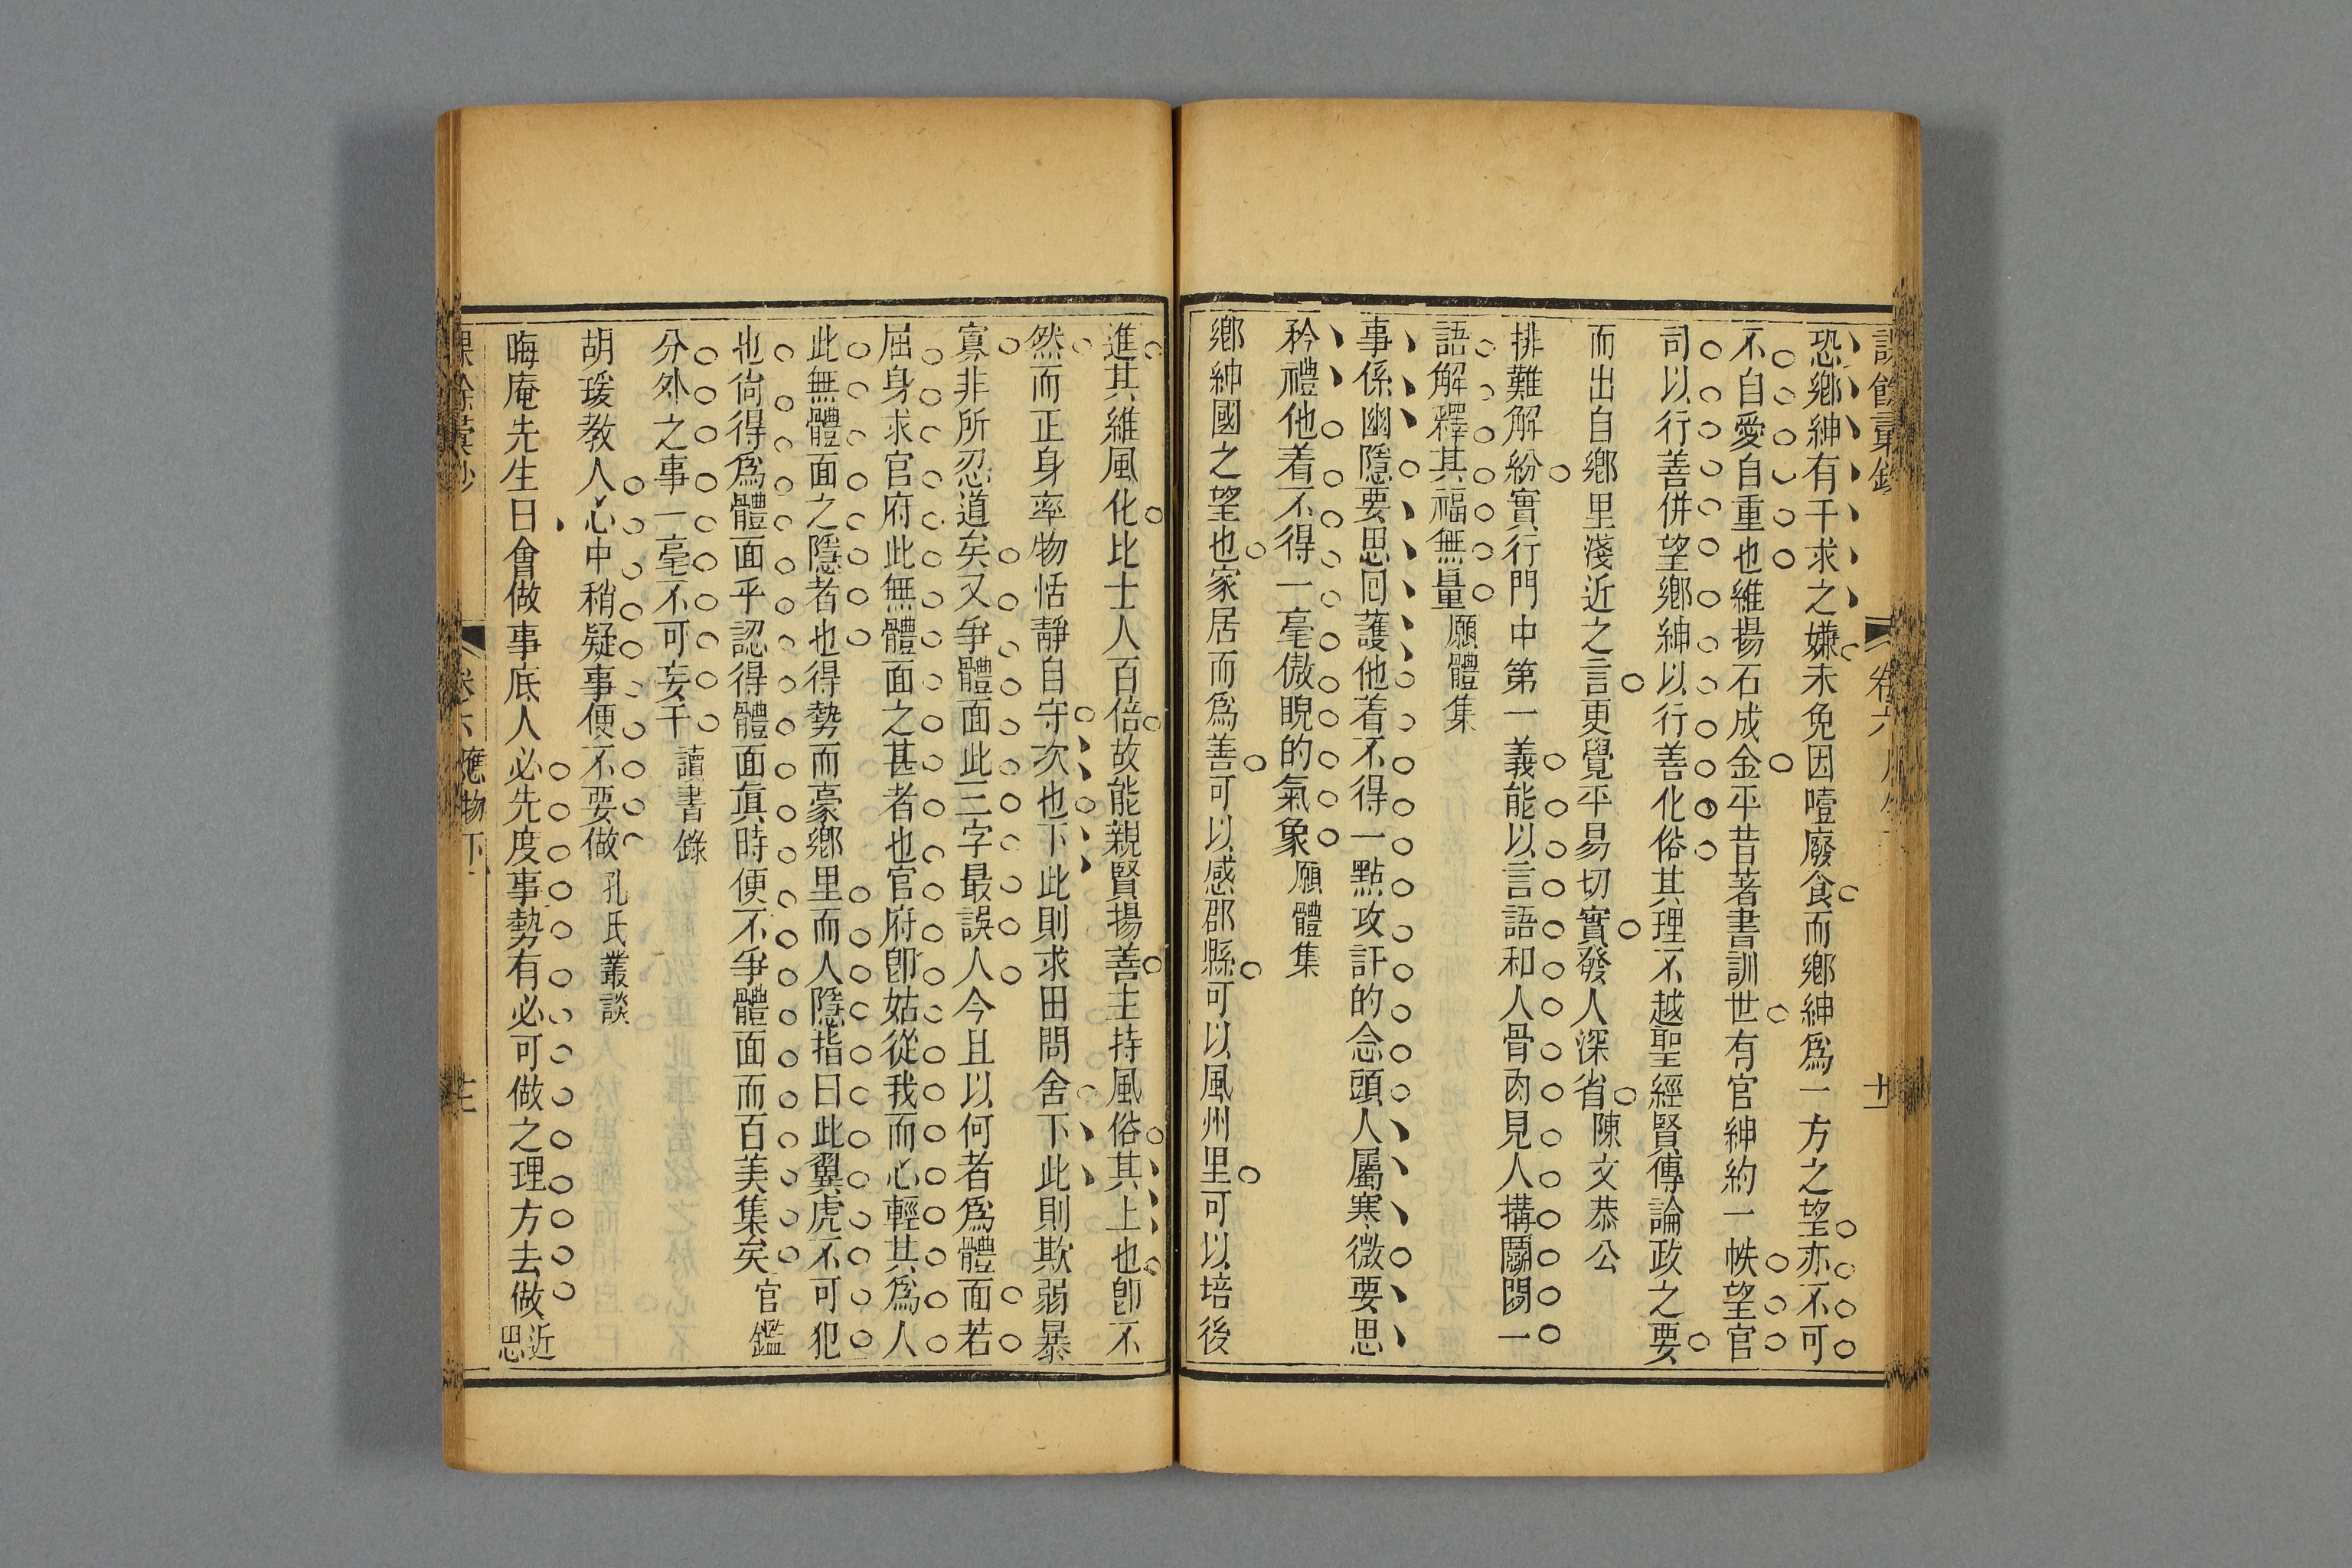 恐鄉紳有干求之嫌未免因噎廢食而鄉紳爲一方之望亦不可
不自愛自重也維揚石成金平昔著書訓世有官紳約一帙望官
司以行善併望鄉紳以行善化俗其理不越聖經賢傳論政之要
而出自鄉里淺近之言更覺平易切實發人深省陳文恭公
排難解紛實行門中第一義能以言語和人骨肉見人搆鬬鬩一
語解釋其福無量願體集
事係幽隱要思囘護他着不得一點攻訐的念頭人屬寒微要思
矜禮他着不得一毫傲睨的氣象願體集
鄉紳國之望也家居而爲善可以感郡縣可以風州里可以培後
進其維風化比士人百倍故能親賢揚善主持風俗其上也卽不
然而正身率物恬靜自守次也下此則求田問舍下此則欺弱暴
寡非所忍道矣又爭體面此三字最誤人今且以何者爲體面若
屈身求官府此無體面之甚者也官府卽姑從我而心輕其爲人
此無體面之隱者也得勢而豪鄉里而人隱指曰此翼虎不可犯
也尙得爲體面乎認得體面眞時便不爭體面而百美集矣官鑑
分外之事一毫不可妄干讀書錄
胡瑗教人心中稍疑事便不要做孔氏叢談
晦庵先生曰會做事底人必先度事勢有必可做之理方去做近思
卷六應物下